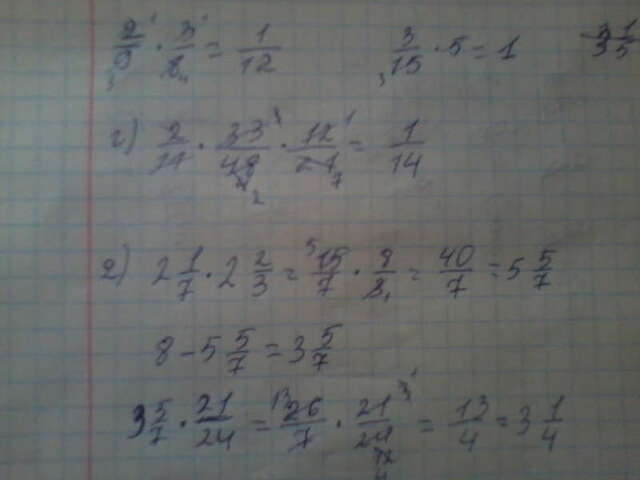 2/9 · 3/8 = 1/12 3/15 · 5 = 1
г) 2/11 · 33/48 · 12/21 = 1/14
2) 2 1/7 · 2 2/3 = 15/7 · 8/3 = 40/7 = 5 5/7
8 - 5 5/7 = 3 5/7
3 5/7 · 21/24 = 26/7 · 21/24 = 13/4 = 3 1/4